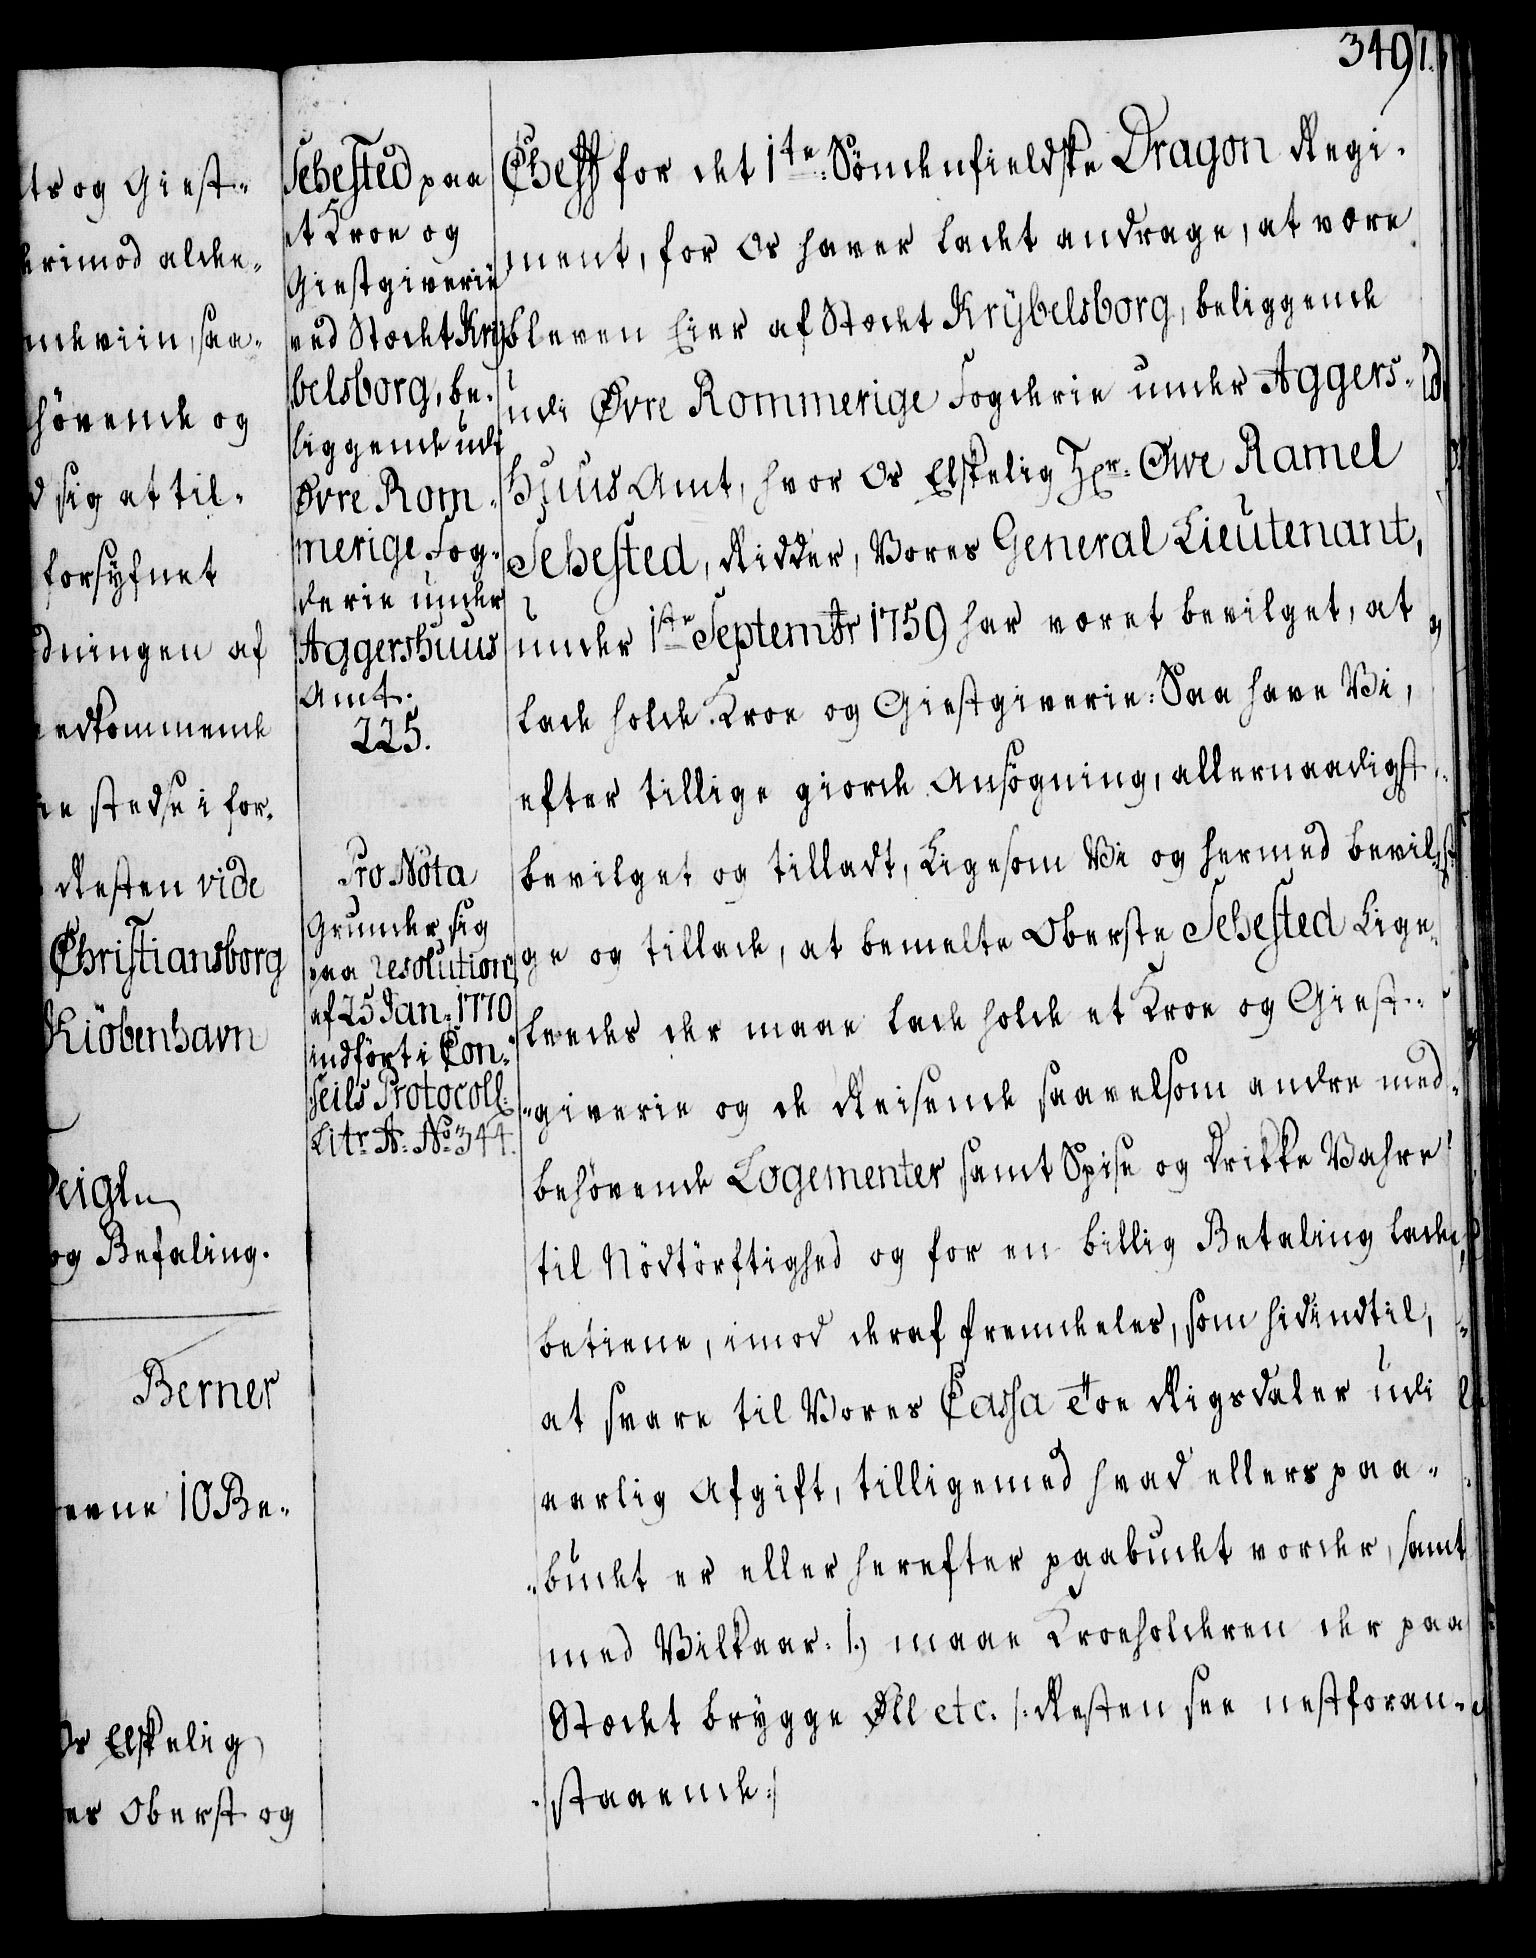 349
1.
ts og Giest-
erimod alde-
ndeviin, saa-
høvende og
d sig at til-
forsyfnet
dningen af
edkommende
ie stedse i for-
Resten vide
Christiansborg
Kiöbenhavn
eigln
og Befaling.
Berner
evne 10 Be-
Os Elskelig
es Oberst og
Sehested paa
et Kroe og
Giestgiverie
ved Stædet Kry-
belsborg, be-
liggende udi
Øvre Rom-
merige Fog-
derie under
Aggershuus
Amt.
225.
Pro Nota
Grunder sig
paa resolution
af 25 Jan: 1770
indført i Con-
seils Protocoll
Litr: A: No 344.
Cheff for det 1te: Söndenfieldske Dragon Regi-
ment, for Os haver ladet andrage, at være
bleven Eier af Stædet Krybelsborg, beliggende
udi Øvre Rommerige Fogderie under Aggers-
huus Amt, hvor Os Elskelig Hr: Owe Ramel
Sehested, Ridder, Vores General Lieutenant,
under 1ste Septembr 1759 har været bevilget, at
lade holde Kroe og Giestgiverie: Saa have Vi,
efter tillige giorde Ansøgning, allernaadigst
bevilget og tilladt, Ligesom Vi og hermed bevil-
ge og tillade, at bemelte Oberste Sehested Lige-
ledes der maae lade holde et Kroe og Giest-
-giverie og de Reisende saavelsom andre med
behøvende Logementer samt Spise og Drikke Vahre
til Nödtörftighed og for en billig Betaling lade
betiene, imod deraf fremdeles, som hidindtil,
at svare til Vores Cassa Toe Rigsdaler udi
aarlig Afgift, tilligemed hvad ellers paa-
-budet er eller herefter paabudet vorder, samt
med Vilkaar: 1.) maae Kroeholderen der paa
Stædet brygge Öll etc. /: Resten see nestforan-
-staaende :/